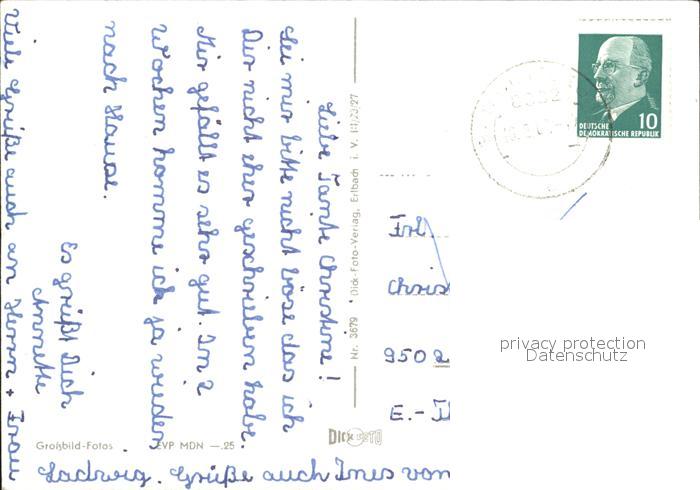 Liebe Tante Christine!
Sei mir bitte nicht böse das ich
Dir nicht eher geschrieben habe.
Mir gefällt es sehr gut. In 2
Wochen komme ich ja wieder
nach Hause.
Es grüßt Dich
Annette
Viele Grüße auch an Herrn + Frau
Ladwig. Grüße auch Ines von
Großbild-Fotos EVP MDN —.25
Nr. 3679 Dick-Foto-Verlag, Erlbach i. V.
DICK FOTO
10
DEUTSCHE
DEMOKRATISCHE REPUBLIK
Frl.
Chris
9502
E.-
privacy protection
Datenschutz